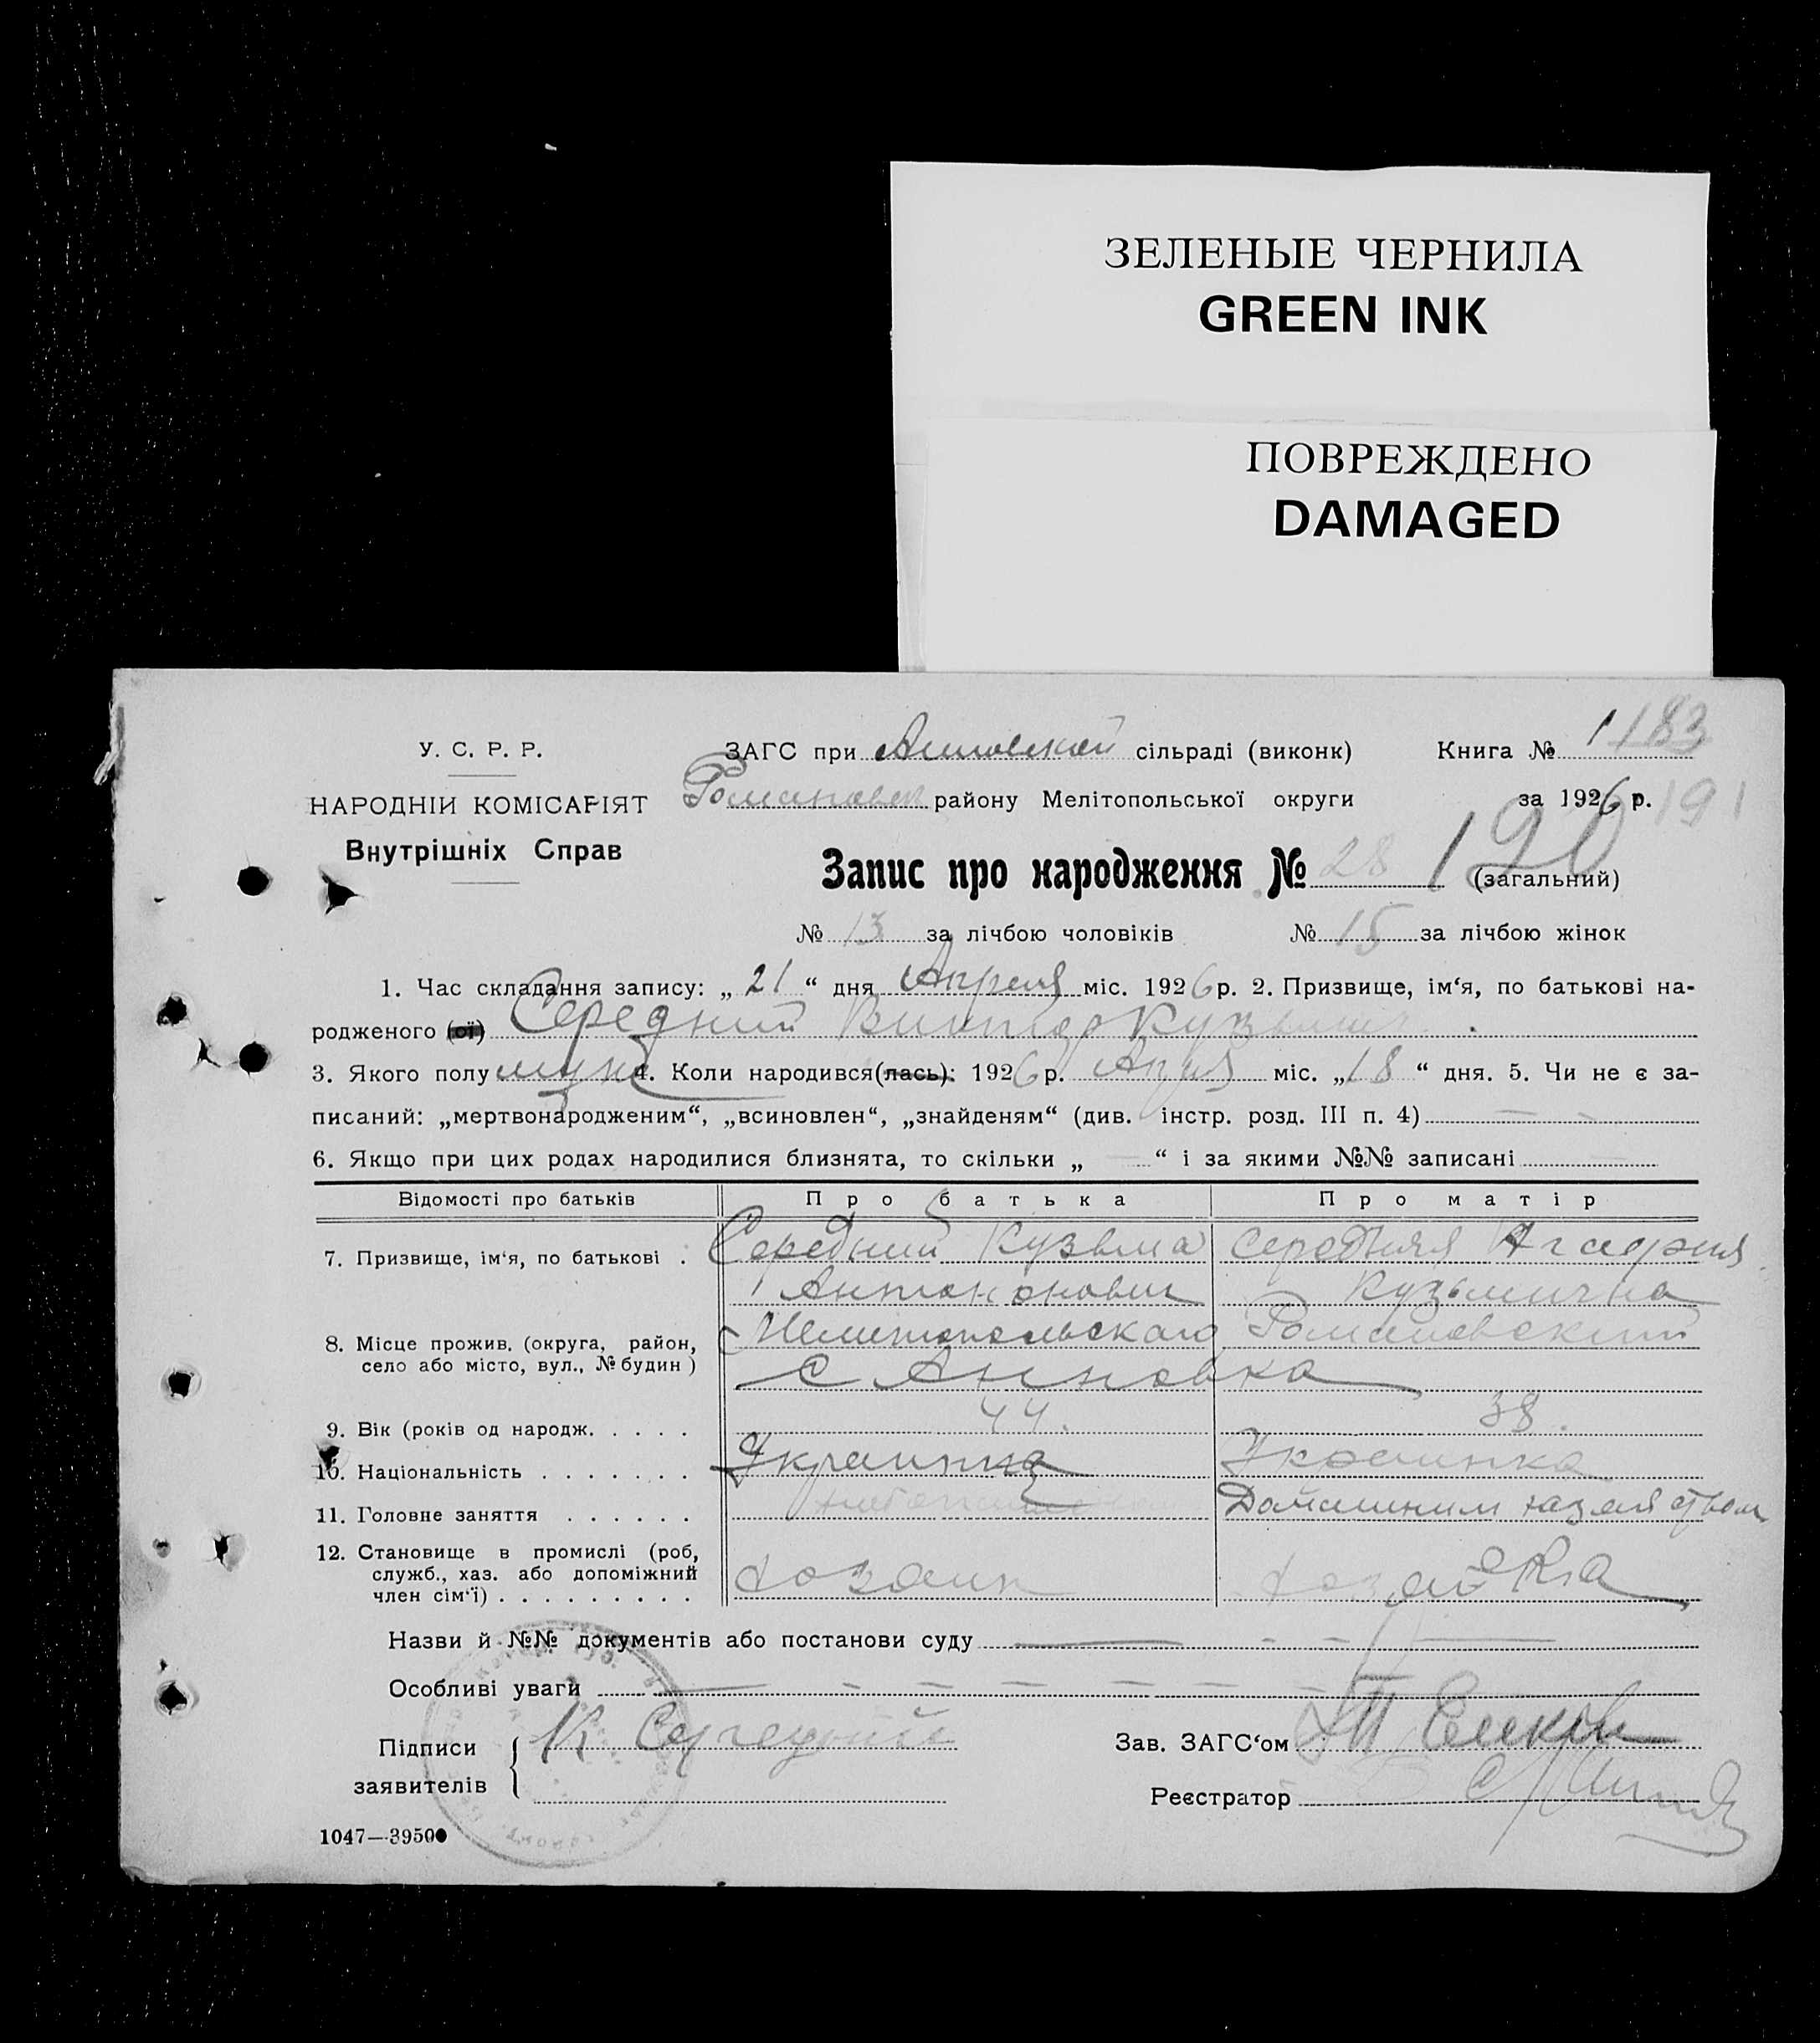 ЗЕЛЕНЫЕ ЧЕРНИЛА
GREEN INK
ПОВРЕЖДЕНО
DAMAGED
У. С. Р. Р.
НАРОДНІЙ КОМІСАРІЯТ
Внутрішніх Справ
ЗАГС при Анновской сільраді (виконк) Книга № 1 183
Романовск району Мелітопольської округи за 1926 р. 191
Запис про народження № 28 190 (загальний)
№ 13 за лічбою чоловіків № 15 за лічбою жінок
1. Час складання запису: „ 21 “ дня Апреля міс. 1926 р. 2. Призвище, ім‘я, по батькові на-
родженого (ої) Середний Виктор Кузьмич
3. Якого полу муж 4. Коли народився (лась): 1926 р. Апреля міс. „ 18 “ дня. 5. Чи не є за-
писаний: „мертвонародженим“, „всиновлен“, „знайденям“ (див. інстр. розд. III п. 4)
6. Якщо при цих родах народилися близнята, то скільки „ — “ і за якими №№ записані —
Відомості про батьків Про батька Про матір
7. Призвище, ім‘я, по батькові . Середний Кузьма Середняя Агафия
Антонович Кузьминична
8. Місце прожив. (округа, район, село або місто, вул., № будин ) Мелитопольскаго Романовский
с Анновка
9. Вік (років од народж. . . . . 44. 38.
10. Національність . . . . . . . Украинец Украинка
11. Головне заняття . . . . . . Домашним хозяйством
12. Становище в промислі (роб, служб., хаз. або допоміжний член сім‘ї) . . . . . . . . . хозяин хозяйка
Назви й №№ документів або постанови суду
Особливі уваги
Підписи заявителів К Середний
Зав. ЗАГС‘ом
Реєстратор
1047—39500